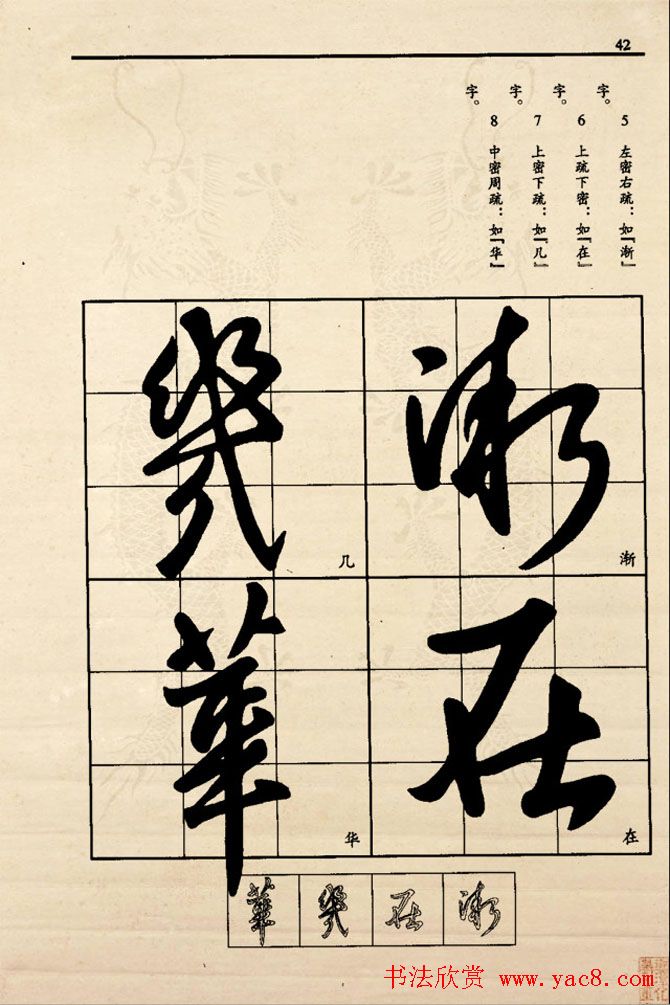 42
5 左密右疏：如『渐』
字。
6 上疏下密：如『在』
字。
7 上密下疏：如『几』
字。
8 中密周疏：如『华』
字。
漸
渐
在
在
幾
几
華
华
華 幾 在 漸
书法欣赏 www.yac8.com